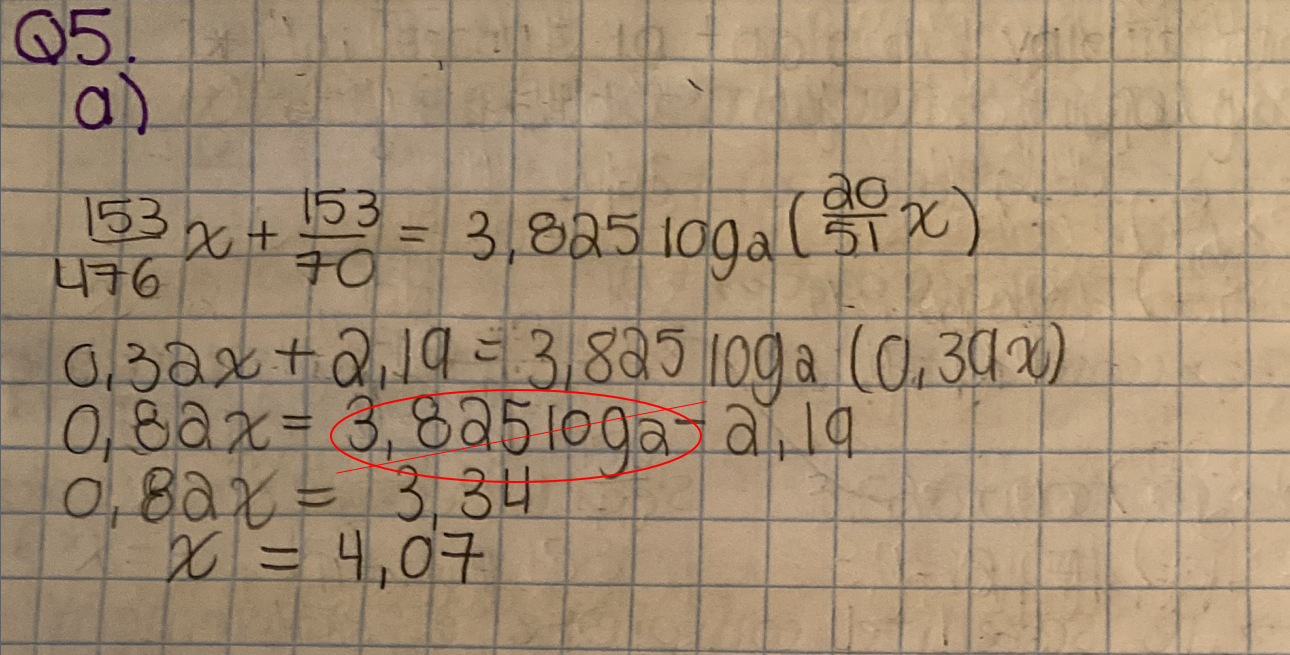 Q5.
a)
153/476 x + 153/70 = 3,825 log2 (20/51 x)
0,32x + 2,19 = 3,825 log2 (0,39x)
0,82x = 3,825 log2 - 2,19
0,82x = 3,34
x = 4,07